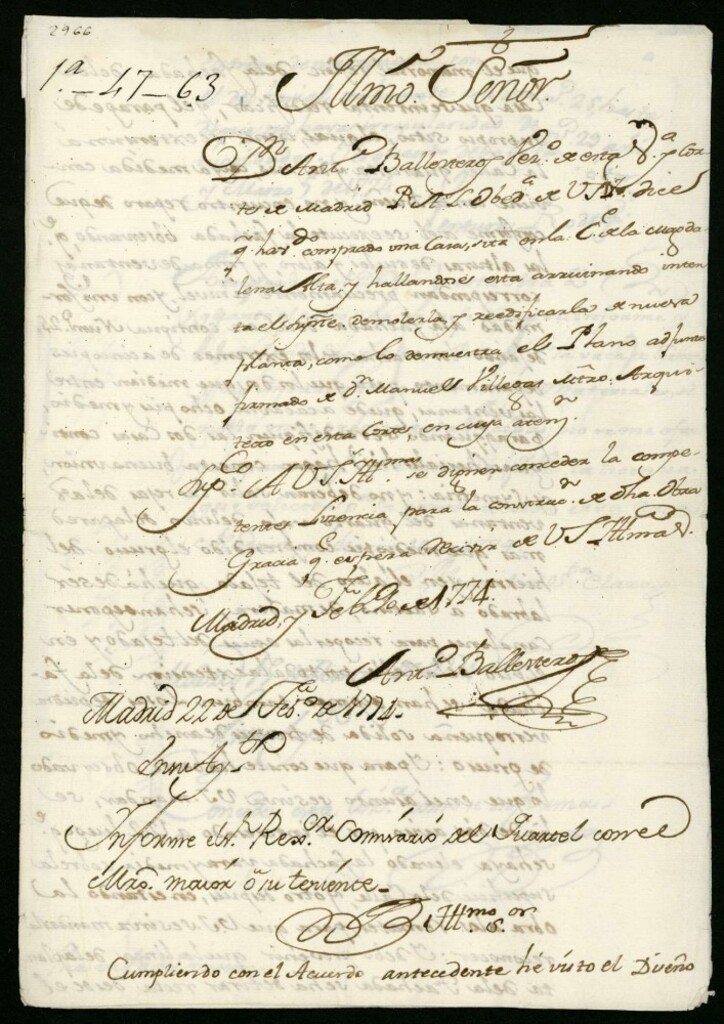 2966
1.ª-47-63
Illmo. Señor.
Dn. Antº. Ballesteros Vezº. de esta Vª. y Cor-
te de Madrid P. A L. Obedª. de VSIª. dice
q. havdo. comprado una Casa, sita en la Cᵉ. de la Magda-
lena Alta, y hallandose esta arruinando inten-
ta el supᵗᵉ. demolerla, y reedificarla de nueva
planta, como lo demuestra el Plano adjunto
firmado de Dn. Manuel Villegas Mtro. Arqui-
tecto en esta Corte, en cuya atenⁿ.
Suppᶜᵒ. A VS.Illmas se dignen conceder la compe-
tente Lizencia para la construcⁿ. de dha. Obra
Gracia q. espera recivir de VS Illma.
Madrid, y Febº. de 1774.
Antº. Ballesteros
Madrid 22 de Febº. de 1774.
En su Aytº
Informe el Sr. Rexor. Comisario del Quartel con el
Mro. maior ô su teniente_
Illmo. Sor.
Cumpliendo con el Acuerdo antecedente hé visto el Diseño